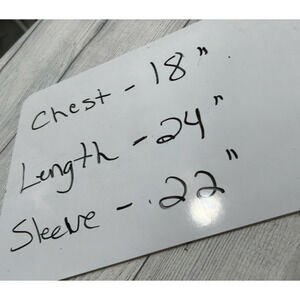 Chest - 18"
Length - 24"
Sleeve - 22"